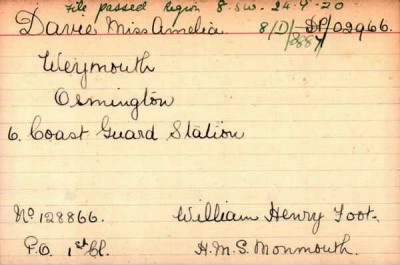 File passed Region 8. S.W. 24.9.20
Davie Miss Amelia. 8/D/ DP/02966.
Weymouth
Osmington
6. Coast Guard Station
No 128866. William Henry Foot.
P.O. 1st Cl. H.M.S. Monmouth.